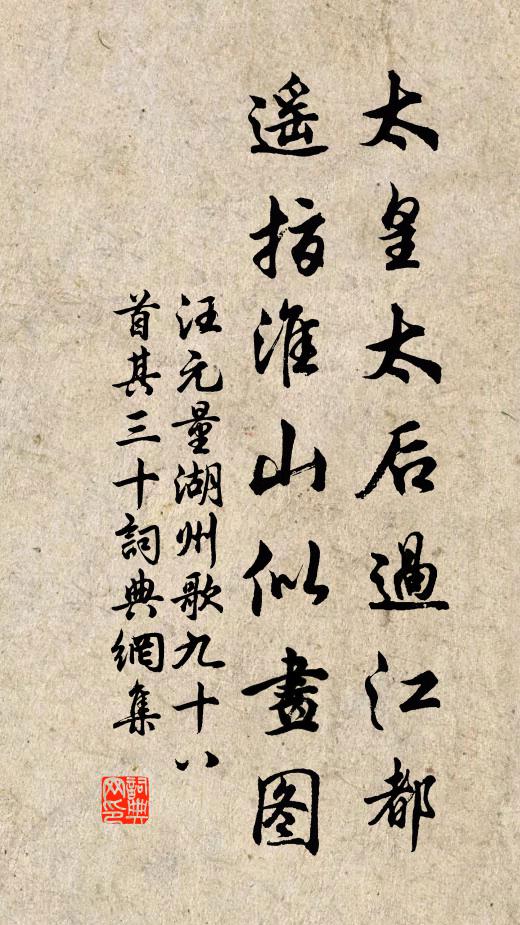 太皇太后過江都
遥指淮山似畫图
汪元量湖州歌九十八
首其三十詞典網集
詞典
网印